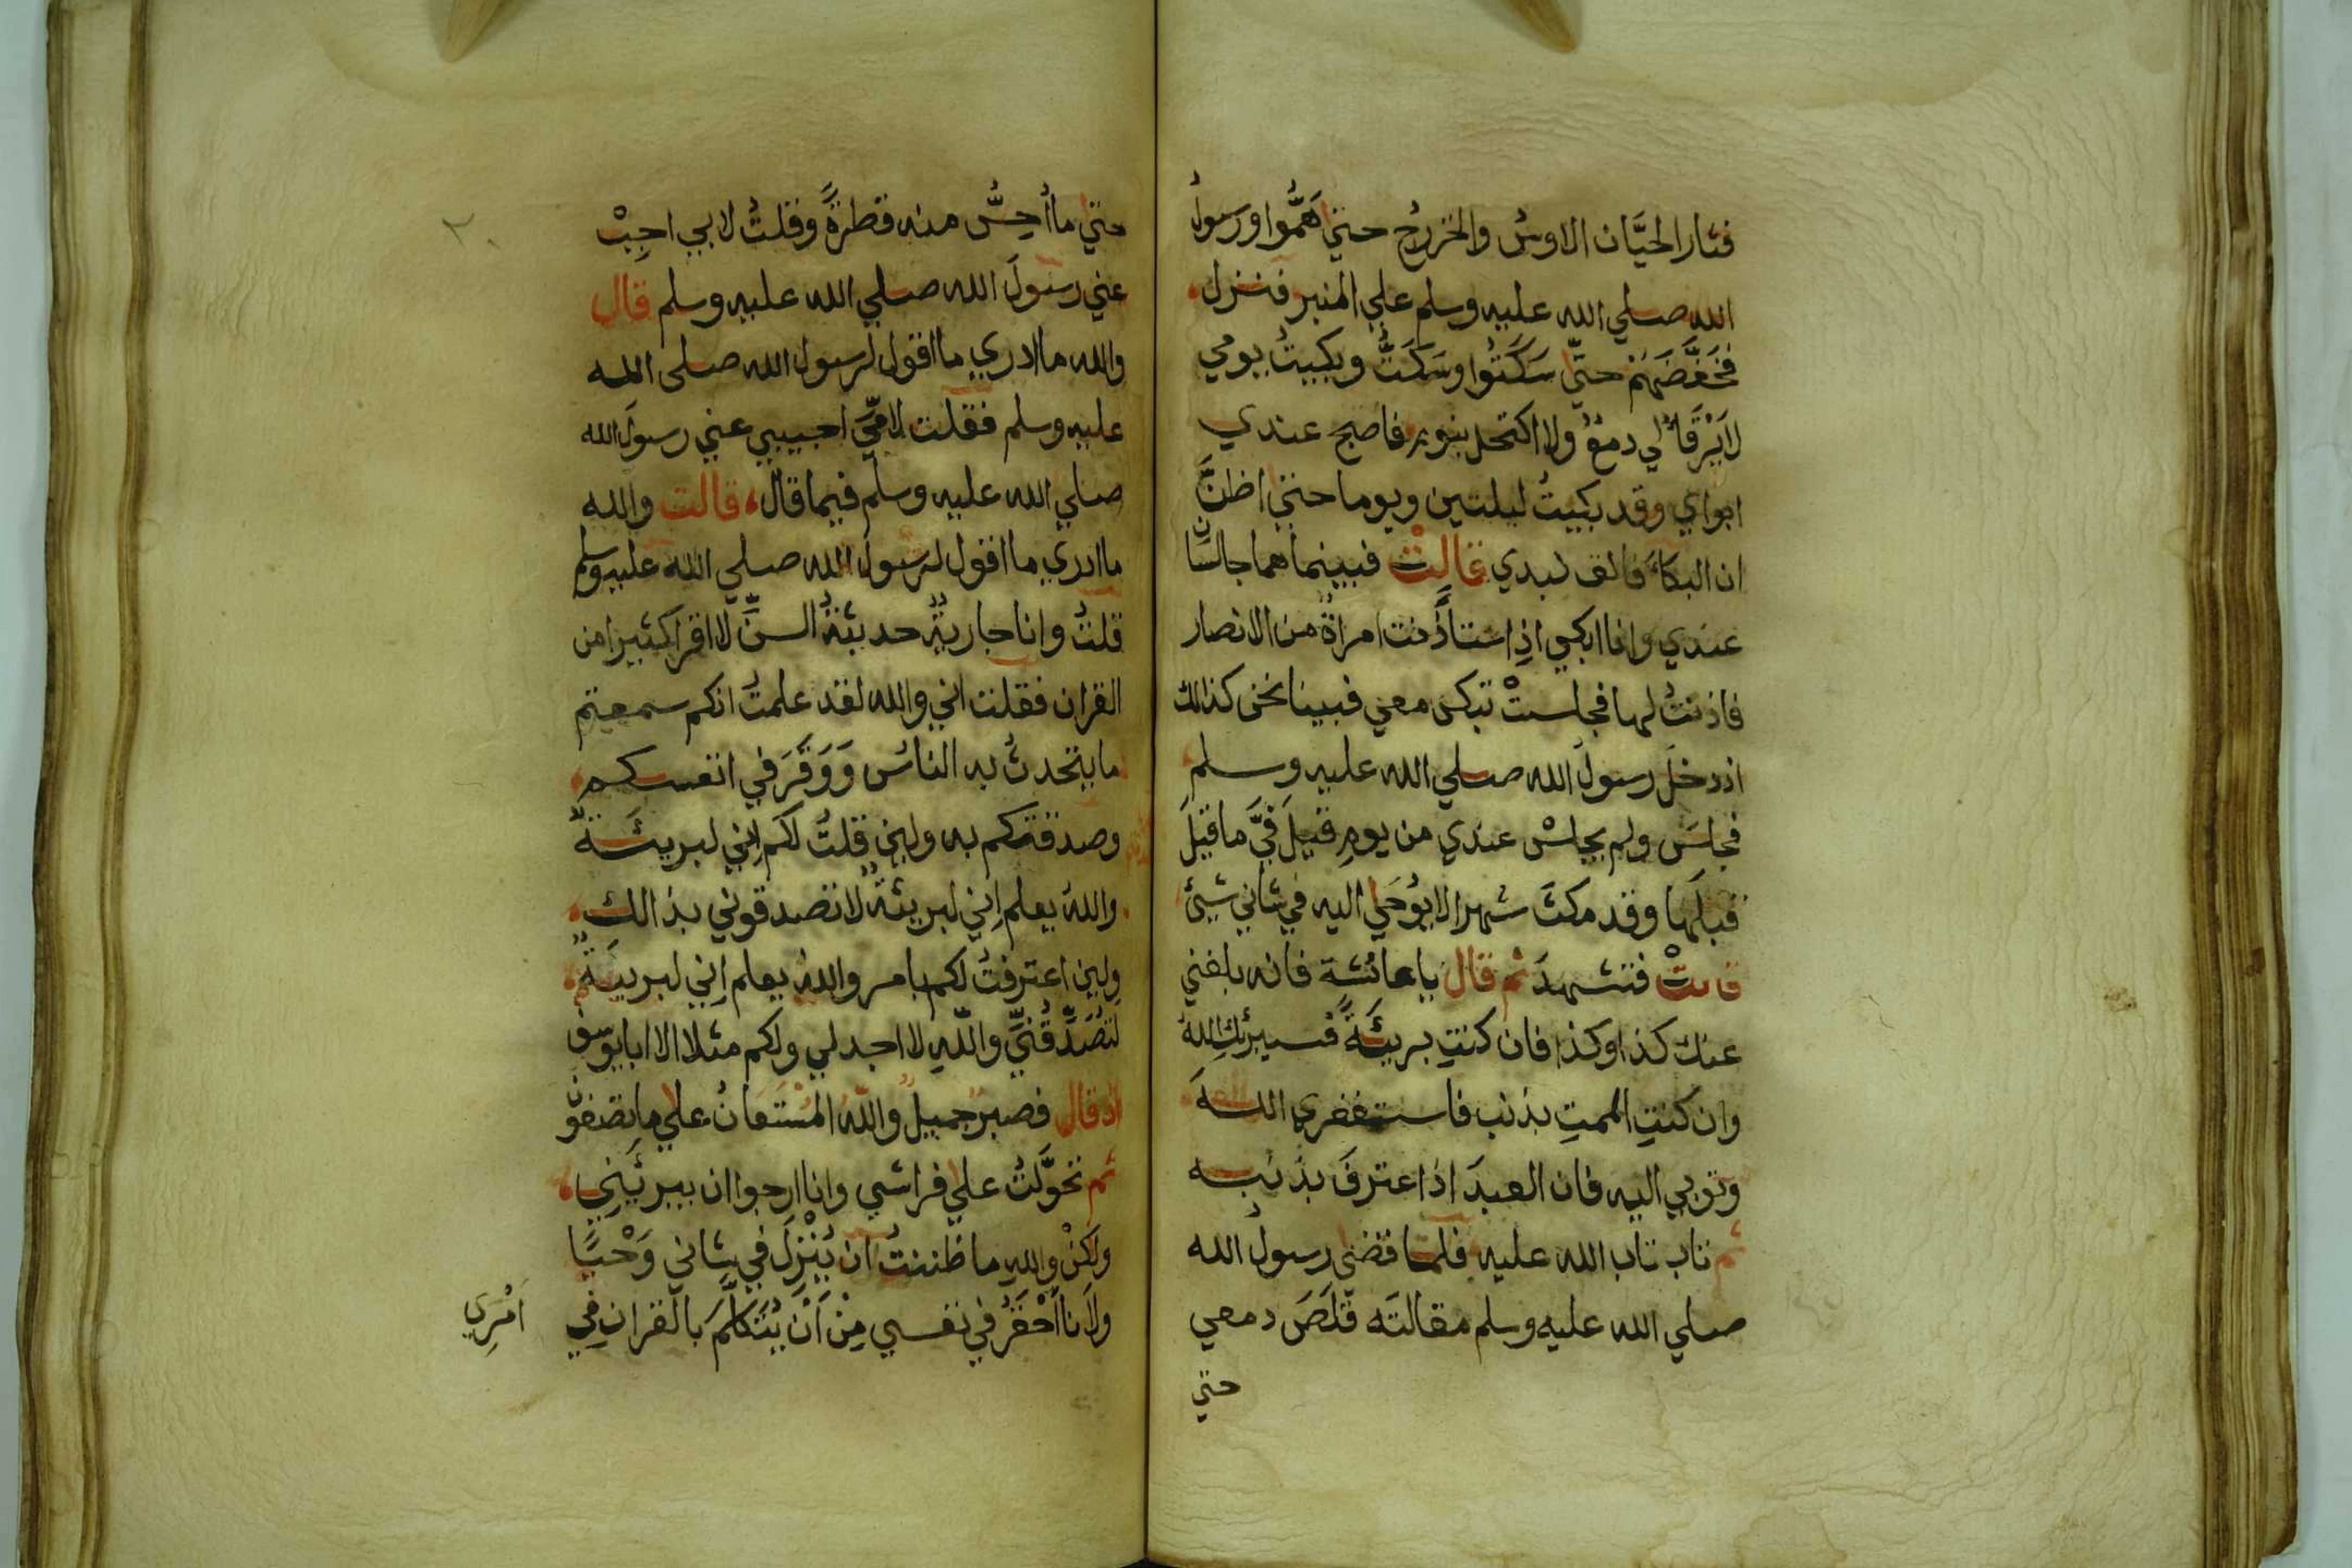 فثار الحيَّان الاوسُ والخزرجُ حتي هَمُّوا ورسولُ
الله صلي الله عليه وسلم علي المنبر فنزل
فخَفَّضَهُمْ حتَّي سَكَتُوا وسَكَتَّ وبكيتُ يومي
لا يَرْقَأُ لي دمعٌ ولا اكتحل بنومٍ فاصبح عندي
ابواي وقد بكيتُ ليلتين ويوما حتي اظنَّ
ان البكاءَ فالق كبدي قالتْ فبينما هما جالسان
عندي وانا ابكي اذِ استأذَنت امراةٌ من الانصار
فاذنتُ لها فجلستْ تبكي معي فبينا نحن كذالك
اذ دخلَ رسولُ الله صلي الله عليه وسلم
فجلسَ ولم يجلسْ عندي من يومِ قيلَ فيَّ ما قيلَ
قبلَها وقد مكثَ شهرا لا يُوحَي اليه في شاني شيئ
قالتْ فتشهدَ ثم قال يا عائشة فانه بلغني
عنك كذا وكذا فان كنتِ بريئَةً فسيبرئكِ اللهُ
وان كنتِ الممتِ بذنب فاستغفري اللهَ
وتوبي اليه فان العبدَ اذا اعترفَ بذنبه
ثم تاب تاب الله عليه فلما قضي رسولُ الله
صلي الله عليه وسلم مقالتَه قَلَصَ دمعي
حتي
٢٠
حتي ما أُحِسُّ منه قطرةً وقلتُ لابي اجِبْ
عني رسولَ الله صلي الله عليه وسلم قال
والله ما ادري ما اقول لرسول الله صلى الله
عليه وسلم فقلت لامِّيَ اجيبي عني رسولَ الله
صلي الله عليه وسلم فيما قال قالت والله
ما ادري ما اقول لرسول الله صلي الله عليه وسلم
قلتُ وانا جاريةٌ حديثةُ السنِّ لا اقرا كثيرا من
القران فقلت اني والله لقد علمتُ انكم سمعتم
ما يتحدثُ به الناسُ وَوَقَرَ في انفسكم
وصدقتمكم به ولين قلتُ لكم اِني لبريئَةٌ
واللهُ يعلم اِني لبريئةٌ لا تصدقوني بذالك
ولين اعترفتُ لكم بامر واللهُ يعلم اِني لبريئَةٌ
لتُصَدِّقُنِّي واللّهِ لا اجد لي ولكم مثلا الا ابا يوسف
اذ قال فصبرٌ جميلٌ واللهُ المُسْتَعانُ علي ما تصفون
ثم تحوَّلتُ علي فراشي وانا ارجوا ان يبرئَنِي
ولكنْ واللهِ ما ظننتُ ان يُنْزِلَ في شاني وَحْيًا
ولَأنا أَحْقَرُ في نفسي مِنْ أَنْ يُتَكلَّمَ بالقران فِي
اَمْرِي